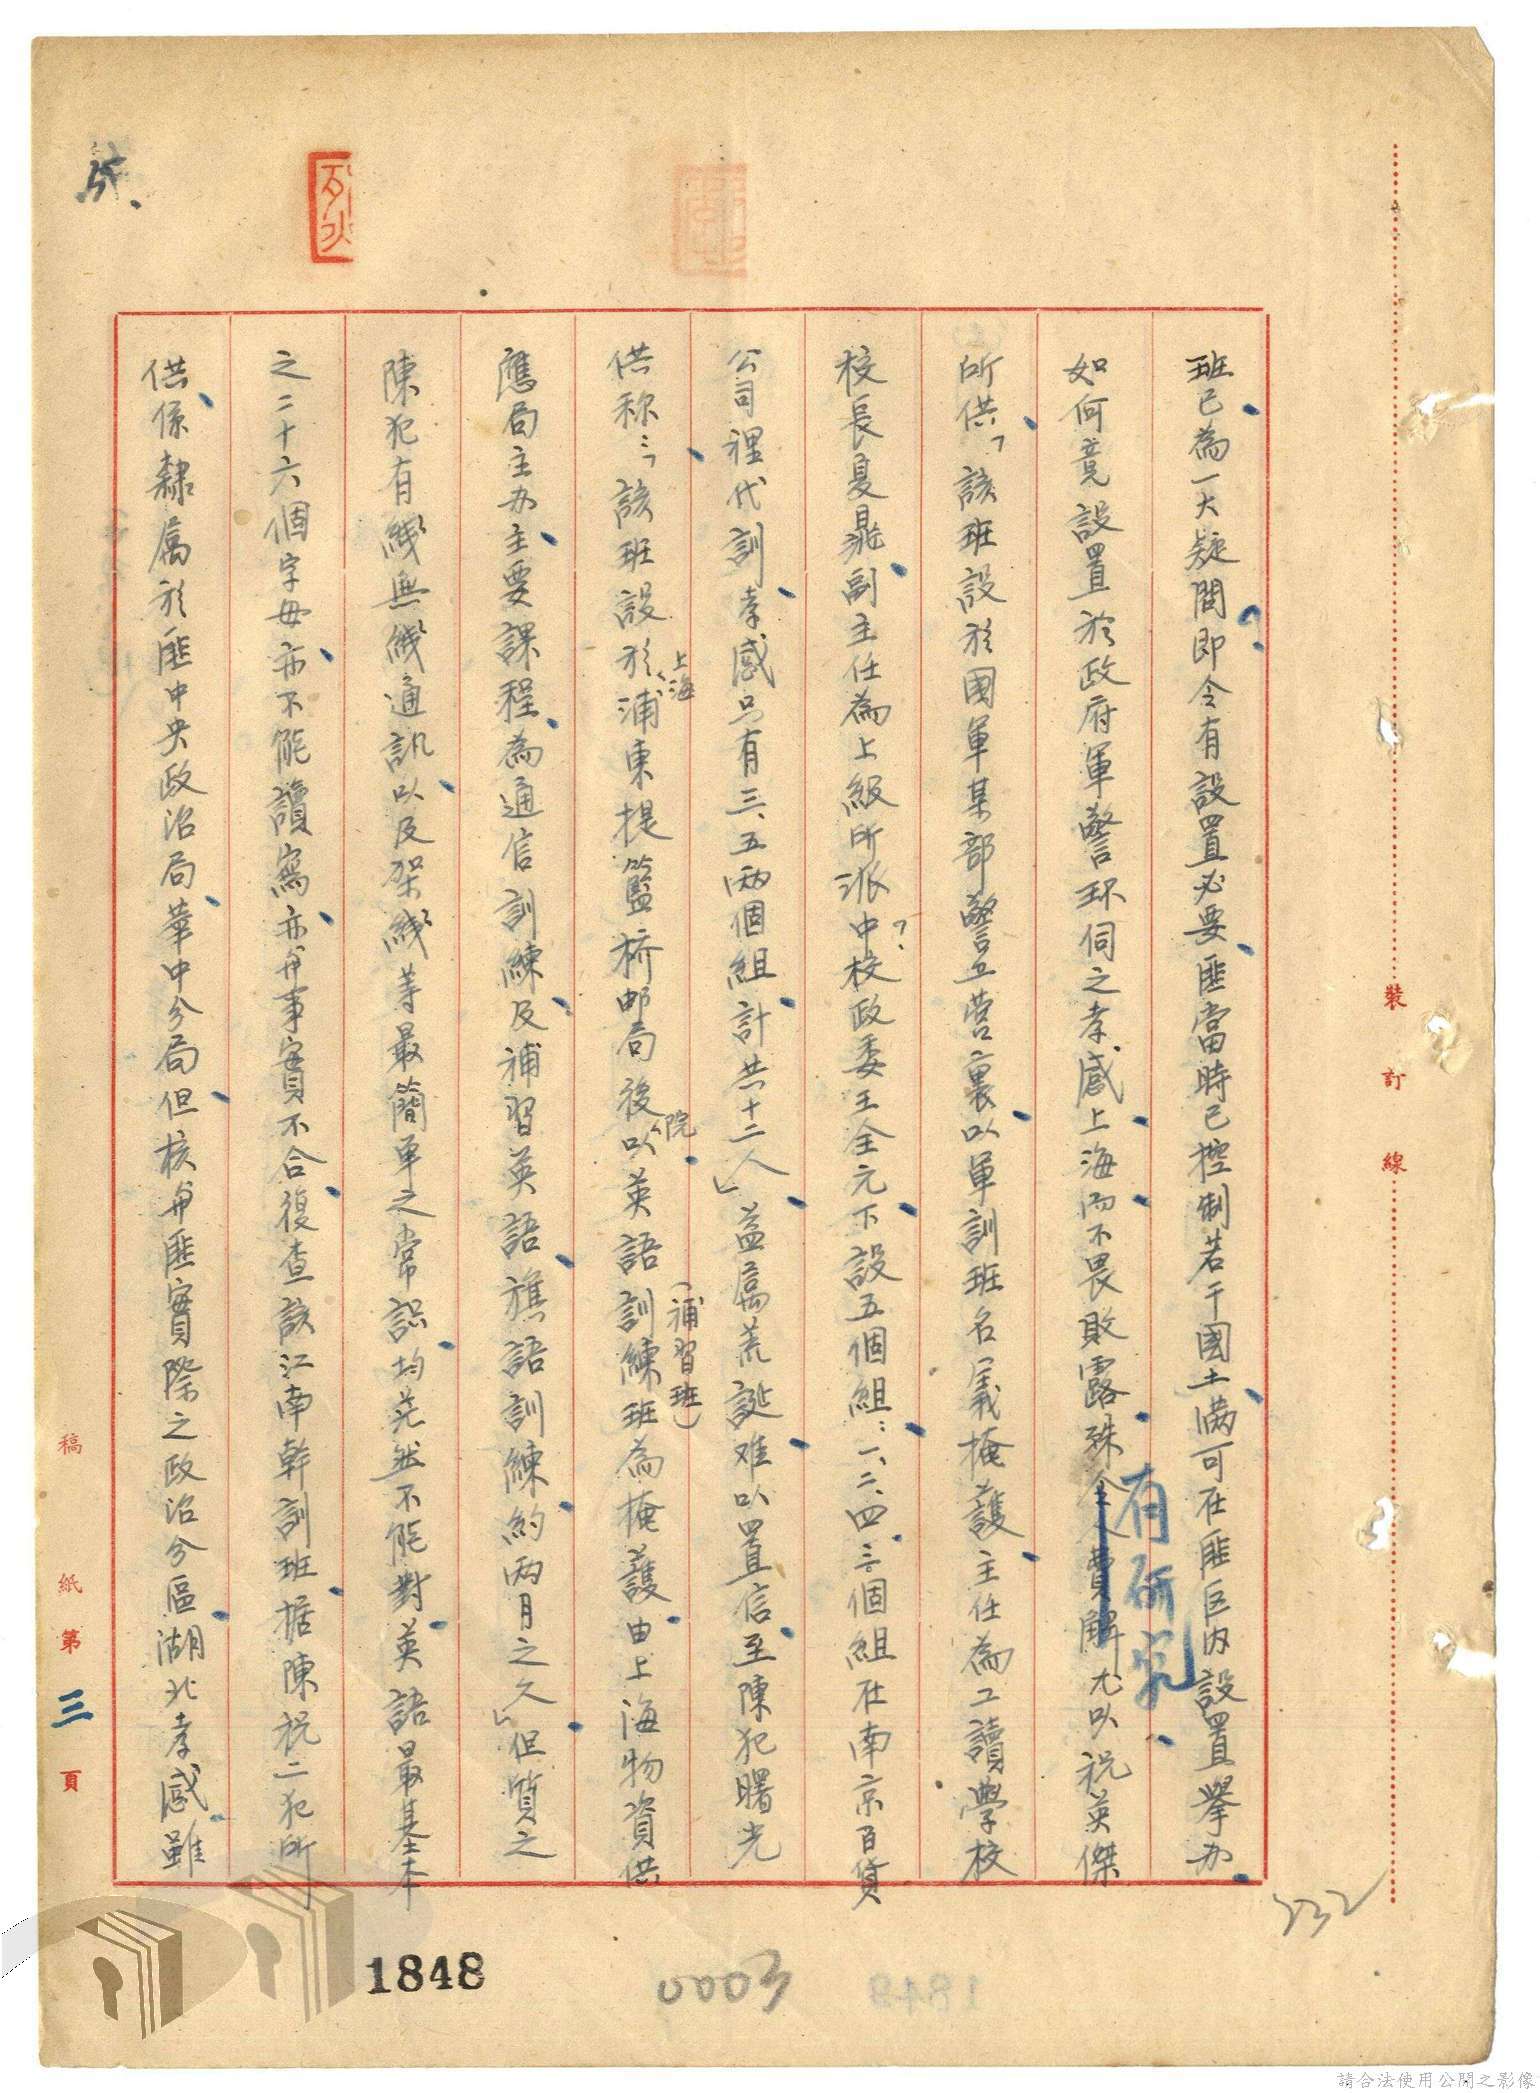 班已為一大疑問即令有設置必要匪當時已控制若干國土滿可在匪區內設置舉办
如何竟設置於政府軍警环伺之孝感上海而不畏敗露殊令人費解尤以祝英傑
有研究
所供「該班設於國軍某部警卫营裏以軍訓班名義掩護主任為工讀學校
校長夏鼎副主任為上級所派中校政委王全元下設五個組：一、二、四、三個組在南京百貨
公司裡代訓孝感只有三、五兩個組計共十二人」益屬荒誕难以置信至陳犯曙光
供称：「該班設於上海浦東提籃桥邮局後院以英語訓練班（補習班）為掩護由上海物資供
應局主办主要課程為通信訓練及補習英語旗語訓練約兩月之久」但質之
陳犯有綫無綫通訊以及架綫等最簡單之常識均茫然不能對英語最基本
之二十六個字母亦不能讀寫亦與事實不合復查該江南幹訓班据陳祝二犯所
供係隸属於匪中央政治局華中分局但核與匪實際之政治分區湖北孝感雖
裝訂線
稿紙第三頁
232
1848
0003
請合法使用公開之影像